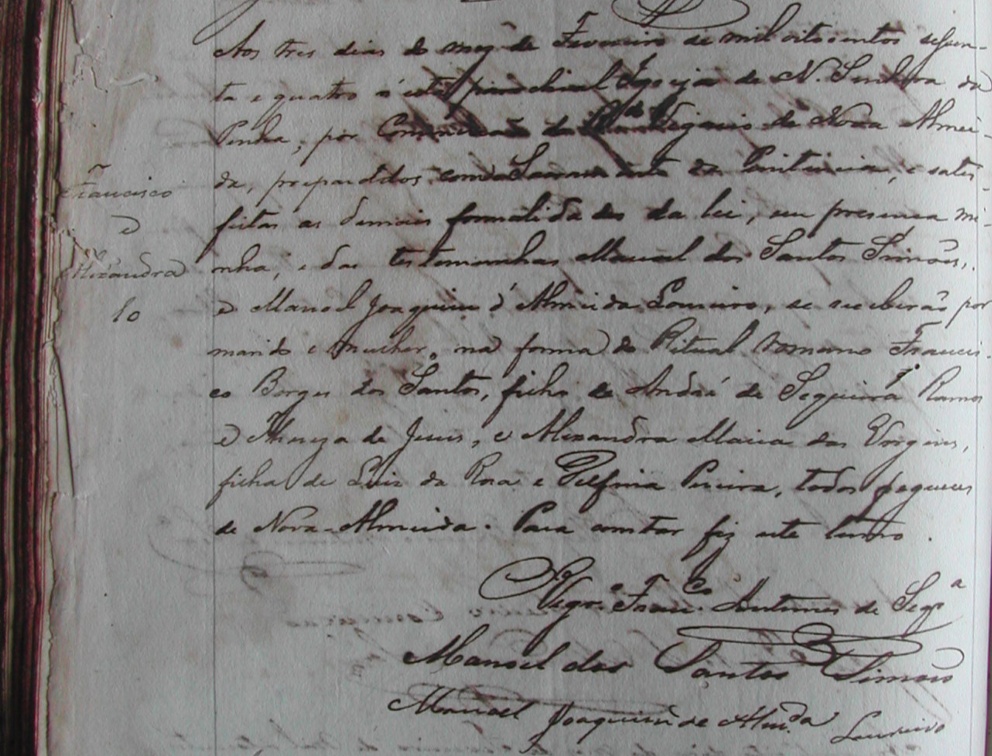 Aos tres dias do mez de Fevereiro de mil oitocentos sessen-
ta e quatro n'esta parochial Igreja de N. Senhora da
Penha, por Commissão do Vigario de Nova Almei-
da, preparados com o Sacramento da Penitencia, e satis-
feitas as demais formalidades da lei, em presença mi-
nha, e das testemunhas Manoel dos Santos Simões,
e Manoel Joaquim d'Almeida Loureiro, se receberão por
marido e mulher, na forma do Ritual Romano Francis-
co Borges dos Santos, filho de André de Siqueira Ramos
e Thereza de Jesus, e Alexandra Maria das Virgens,
filha de Luiz da Rosa e Delfina Pereira, todos freguezes
de Nova-Almeida. Para constar fiz este termo.
Francisco
e
Alexandra
Vigr.o Franc.co Antunes de Seq.a
Manoel dos Santos Simões
Manoel Joaquim de Alm.da Loureiro